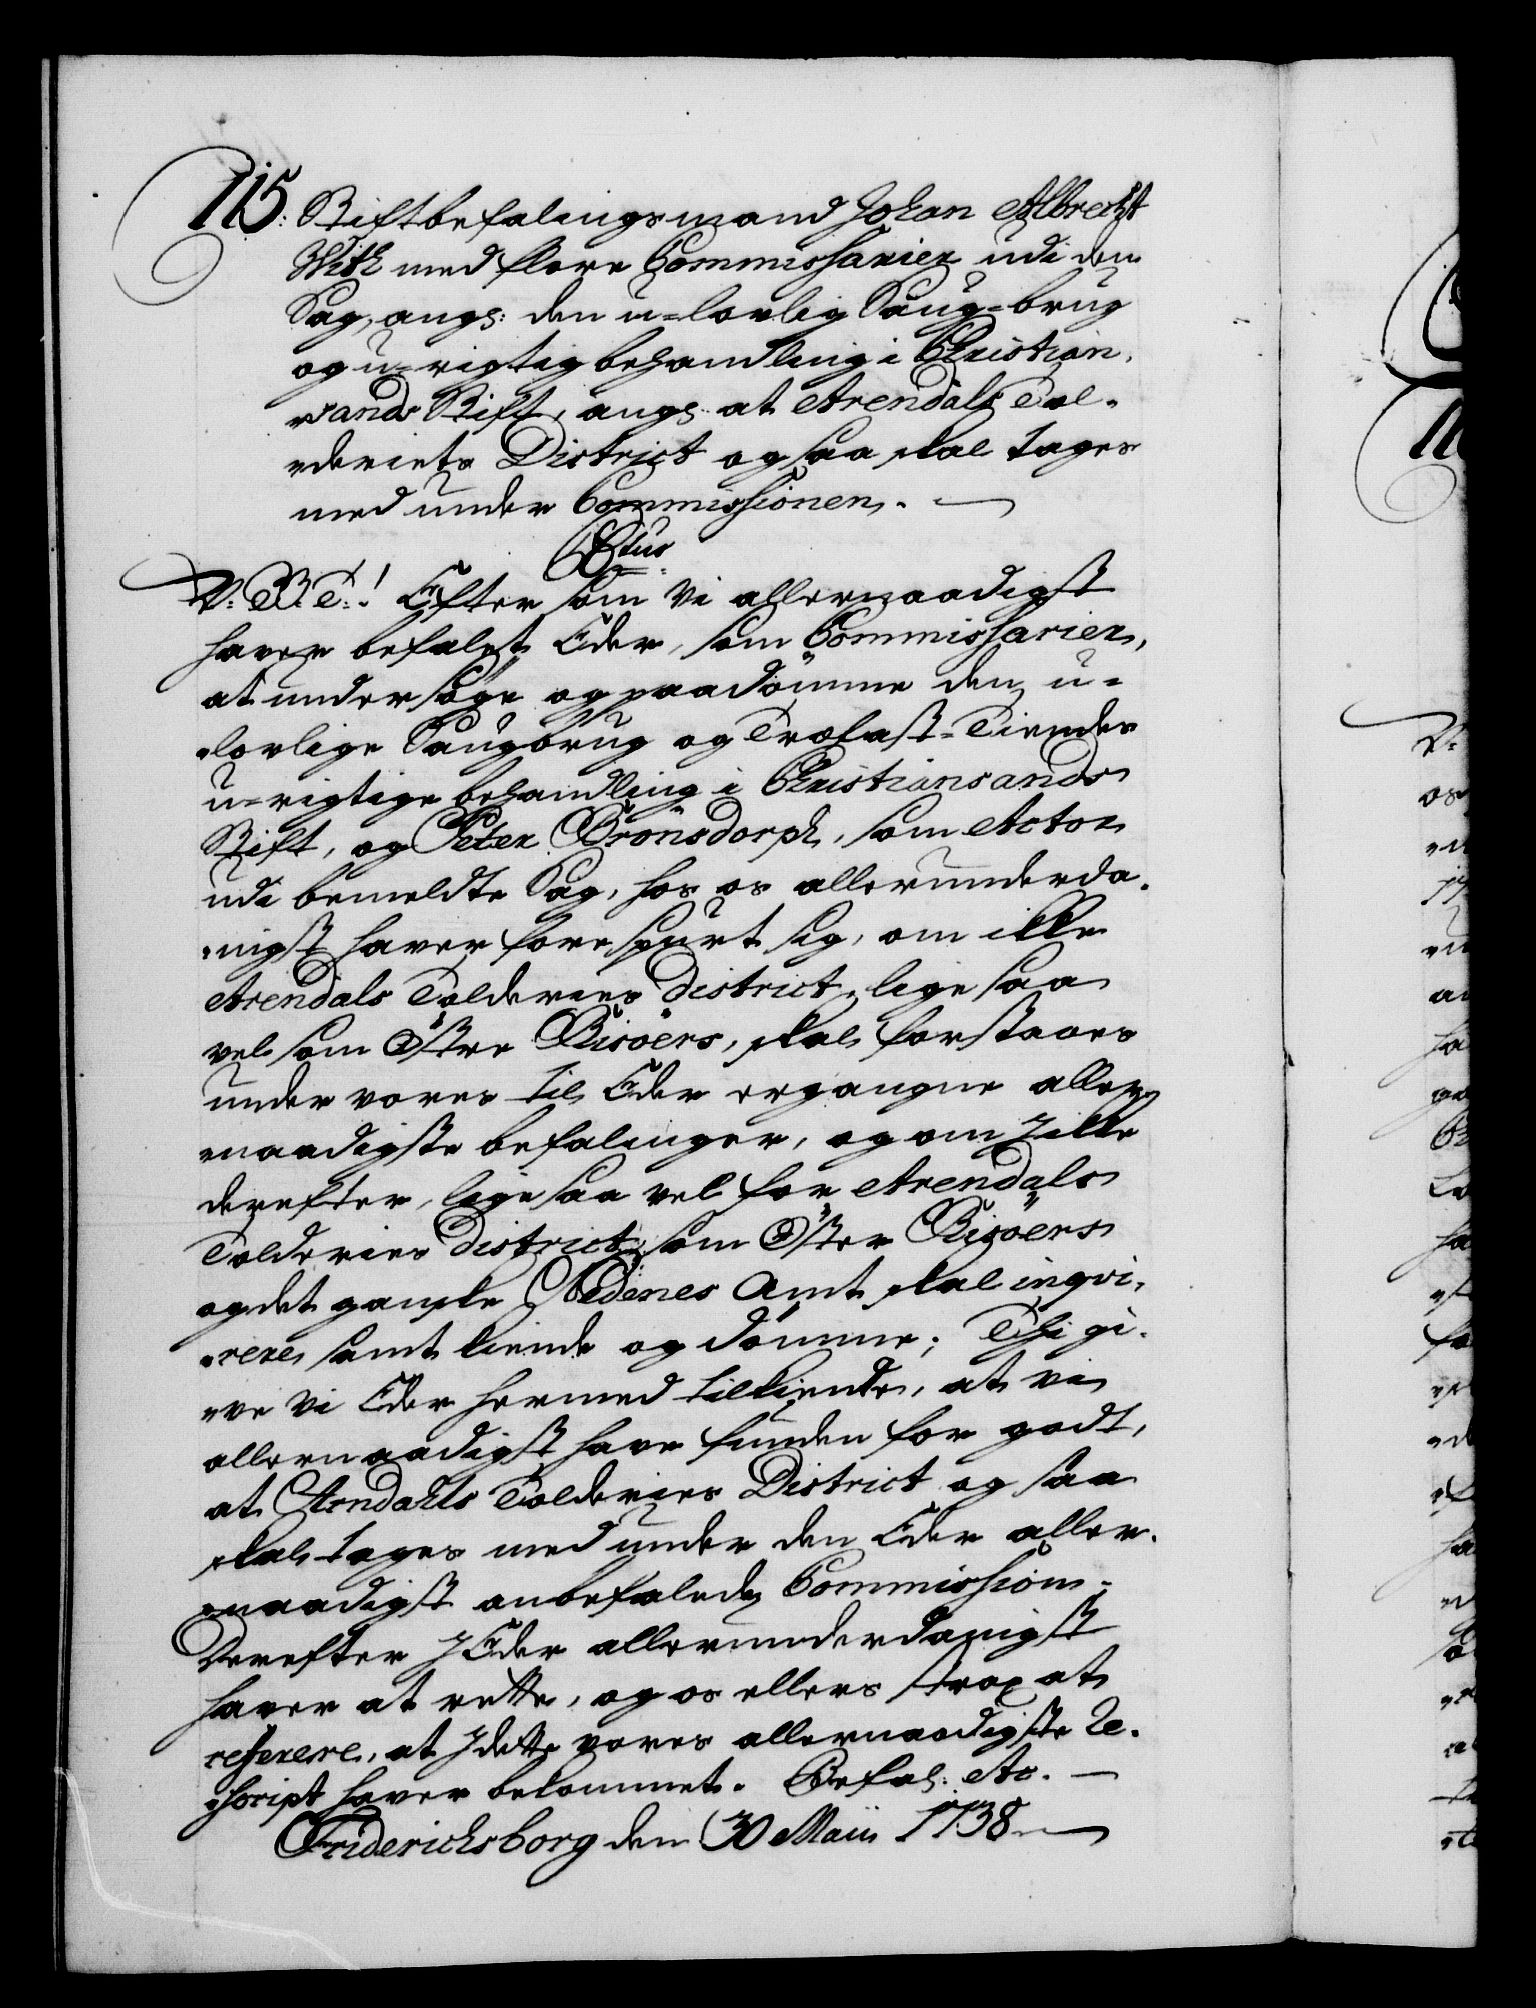 115: Stiftbefalingsmand Johan Albrecht
With med flere Commissarier udi den
Sag, angs: den u-lovlig Saug-brug
og u-rigtig behandling i Christian,
„sands Stift, angs: at Arendals Tol„
„deriets District og saa skal tages
med under Commissionen. —
C6tus
V: G: T:! Efter som Vi allernaadigst
haver befalet Eder, som Commissarier,
at undersöge og paadömme den u-
„lovlige Saugbrug og Trælast-Tiendes
u-rigtige behandling i Christiansands
Stift, og Peter Brönsdorph, som Actor
udi bemeldte Sag, hos os allerunderda„
„nigst haver forespurt sig, om ikke
Arendals Tolderies District, lige saa
vel som Östre Riisöers, skal forstaaes
under vores til Eder ergangne aller„
„naadigste befalinger, og om I ikke
derefter, lige saa vel for Arendals
Tolderies District, som Öster Riisöers
og det gamle Nedenes Amt skal inqvi„
„rere samt kiende og dömme; Thi gi„
„ve Vi Eder hermed tilkiende, at vi
allernaadigst have funden for godt,
at Arndahls Tolderies District og saa
skal tages med under den Eder aller„
„naadigst anbefalede Commission-
Derefter I Eder allerunderdanigst
haver at rette, og os ellers strax at
referere, at I dette vores allernaadigste Re„
„script haver bekommet. Befal: etc. —
Friderichsborg den 30 Maii 1738 —